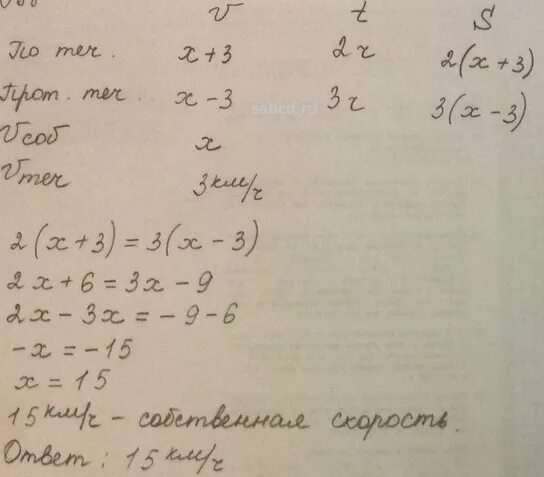 v t S
По теч. x+3 2ч 2(x+3)
Прот. теч. x-3 3ч 3(x-3)
sabcd.ru
Vсоб x
Vтеч 3 км/ч
2(x+3)=3(x-3)
2x+6=3x-9
2x-3x=-9-6
-x=-15
x=15
15 км/ч - собственная скорость.
Ответ: 15 км/ч